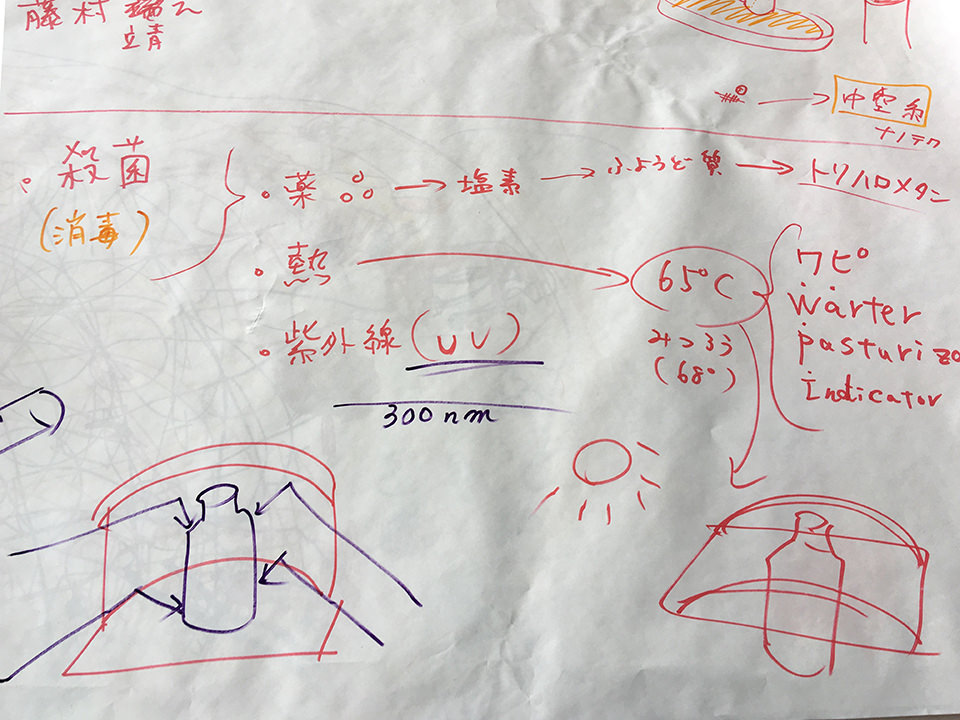 藤村靖之
靖
中空糸
ナノテク
・殺菌
(消毒)
・薬 → 塩素 → ふようど質 → トリハロメタン
・熱 → 65℃
みつろう
(68°)
ワピ
warter
pasturize
indicator
・紫外線(UV)
300nm